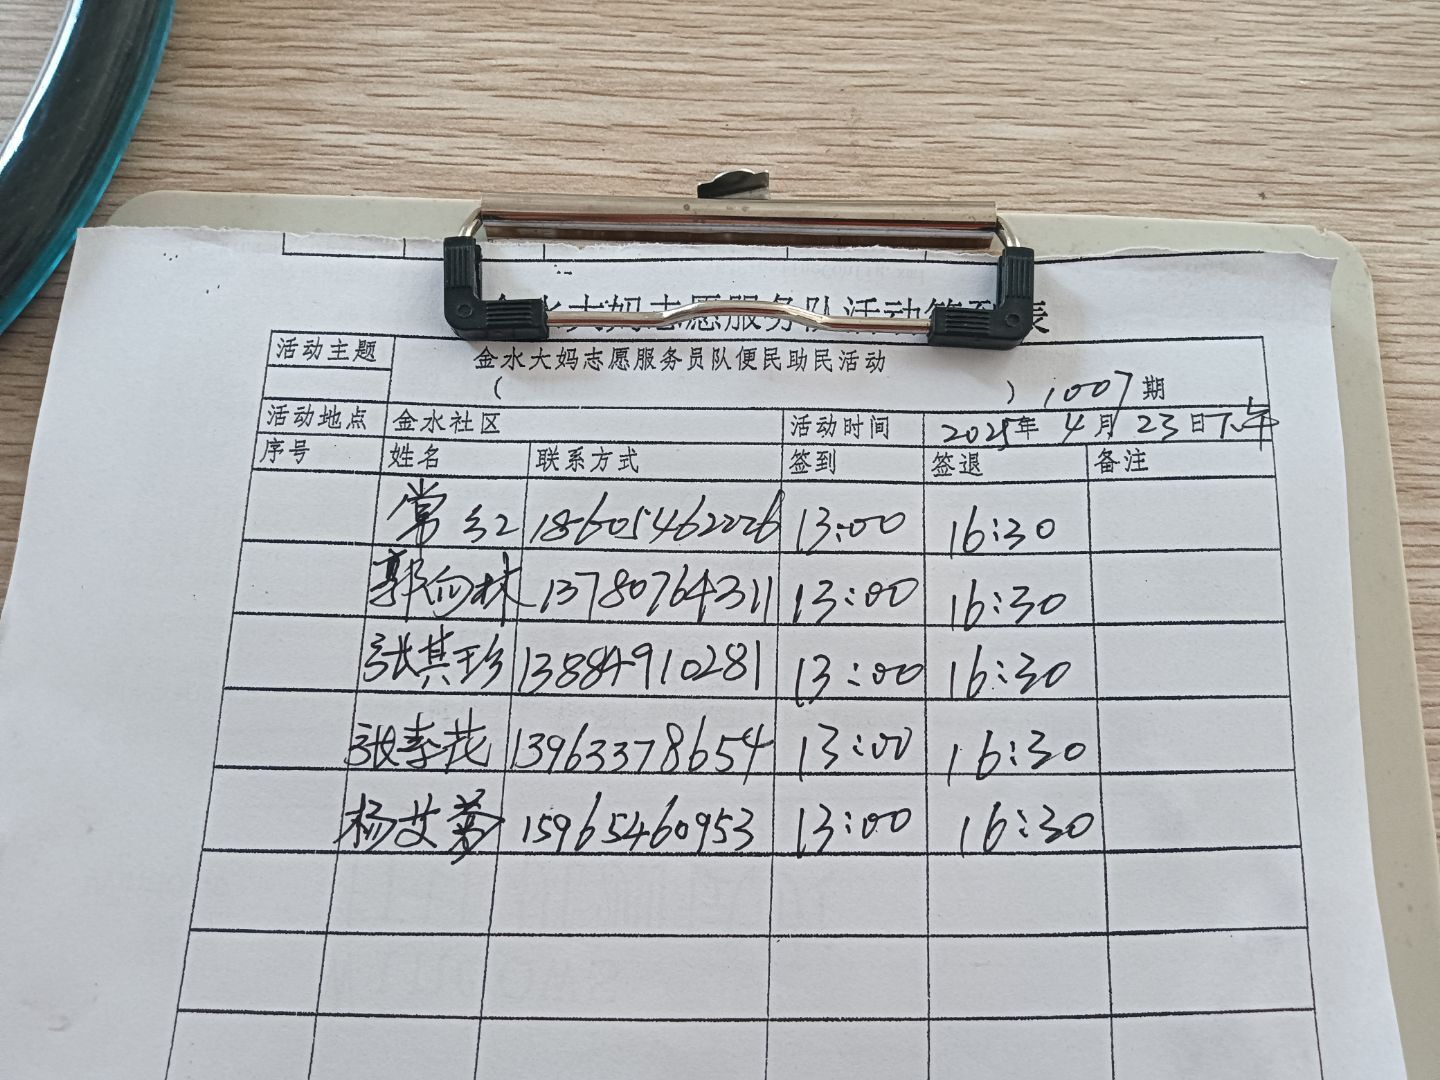 金水大妈志愿服务队活动签到表
活动主题 金水大妈志愿服务员队便民助民活动
( ) 1007期
活动地点 金水社区 活动时间 2025年 4月 23日下午
序号 姓名 联系方式 签到 签退 备注
常红 18605462226 13:00 16:30
郭向林 13780764311 13:00 16:30
张其珍 13884910281 13:00 16:30
张素花 13963378654 13:00 16:30
杨艾 15965460953 13:00 16:30